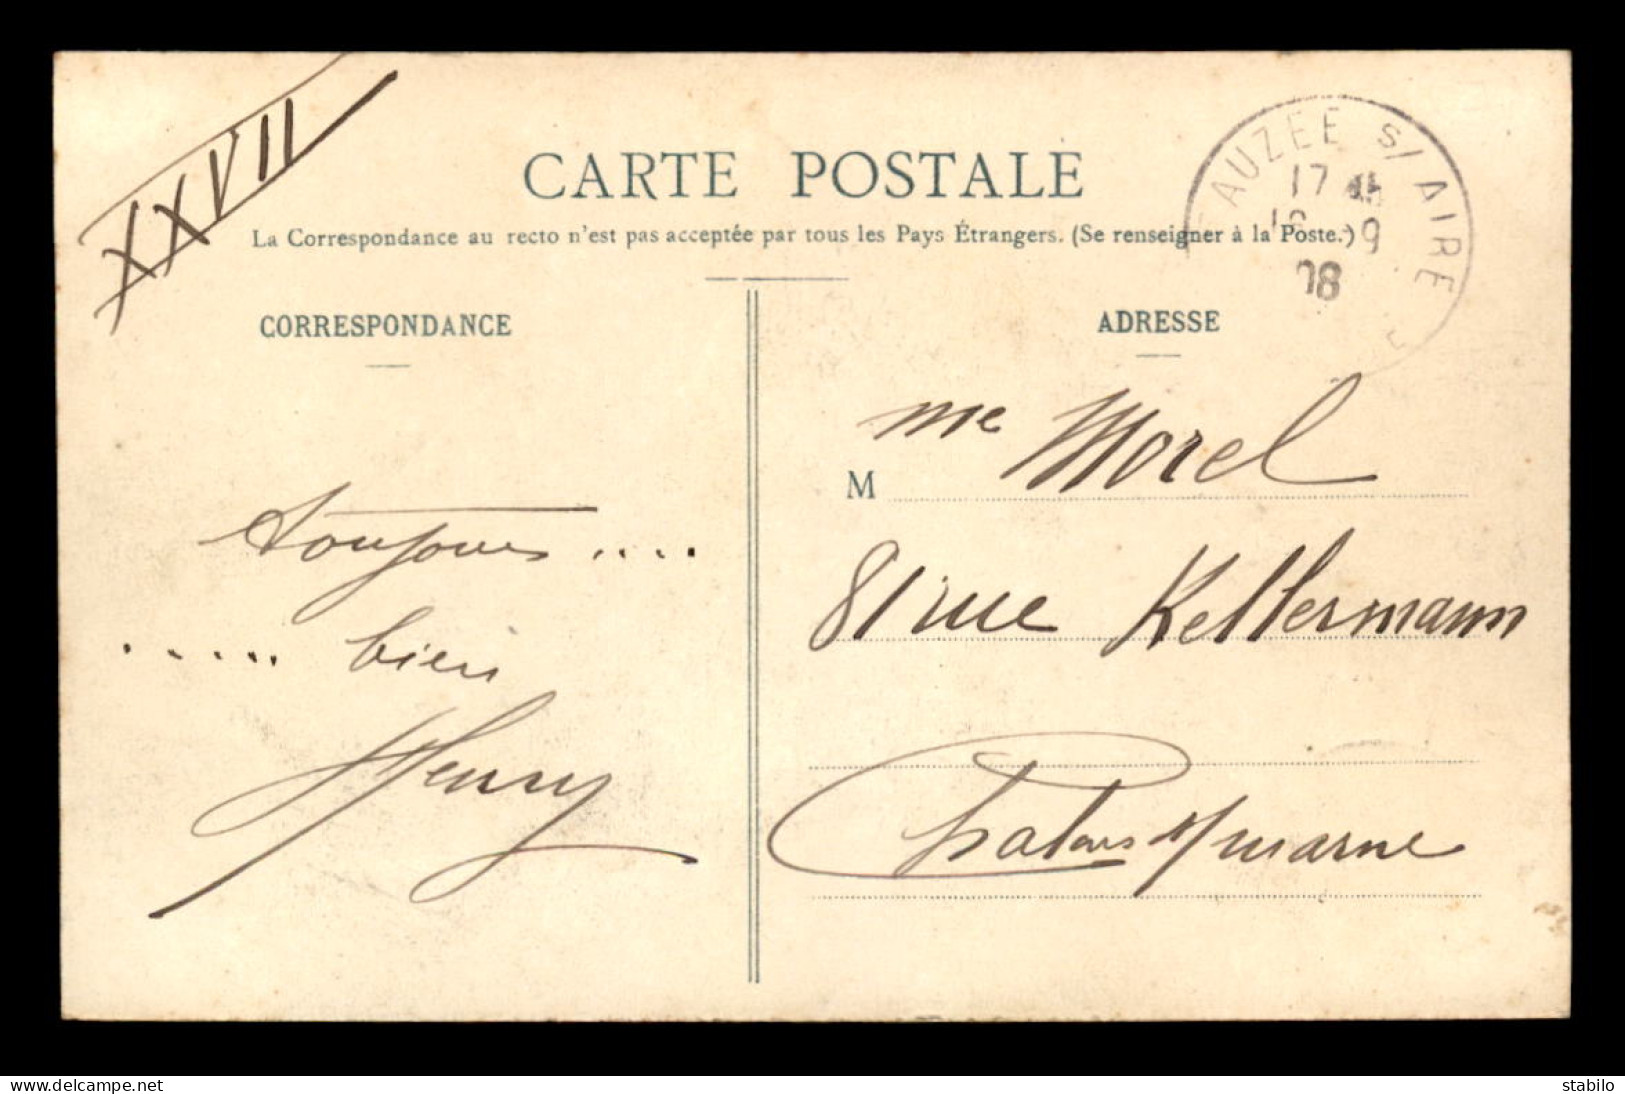 XXVII
CARTE POSTALE
La Correspondance au recto n'est pas acceptée par tous les Pays Étrangers. (Se renseigner à la Poste.)
AUZEE S/ AIRE
17 45
9
08
CORRESPONDANCE
toujours ....
..... bien
Henry
ADRESSE
M
Me Morel
81 rue Kellermann
Chalons s/ marne
www.delcampe.net
stabilo